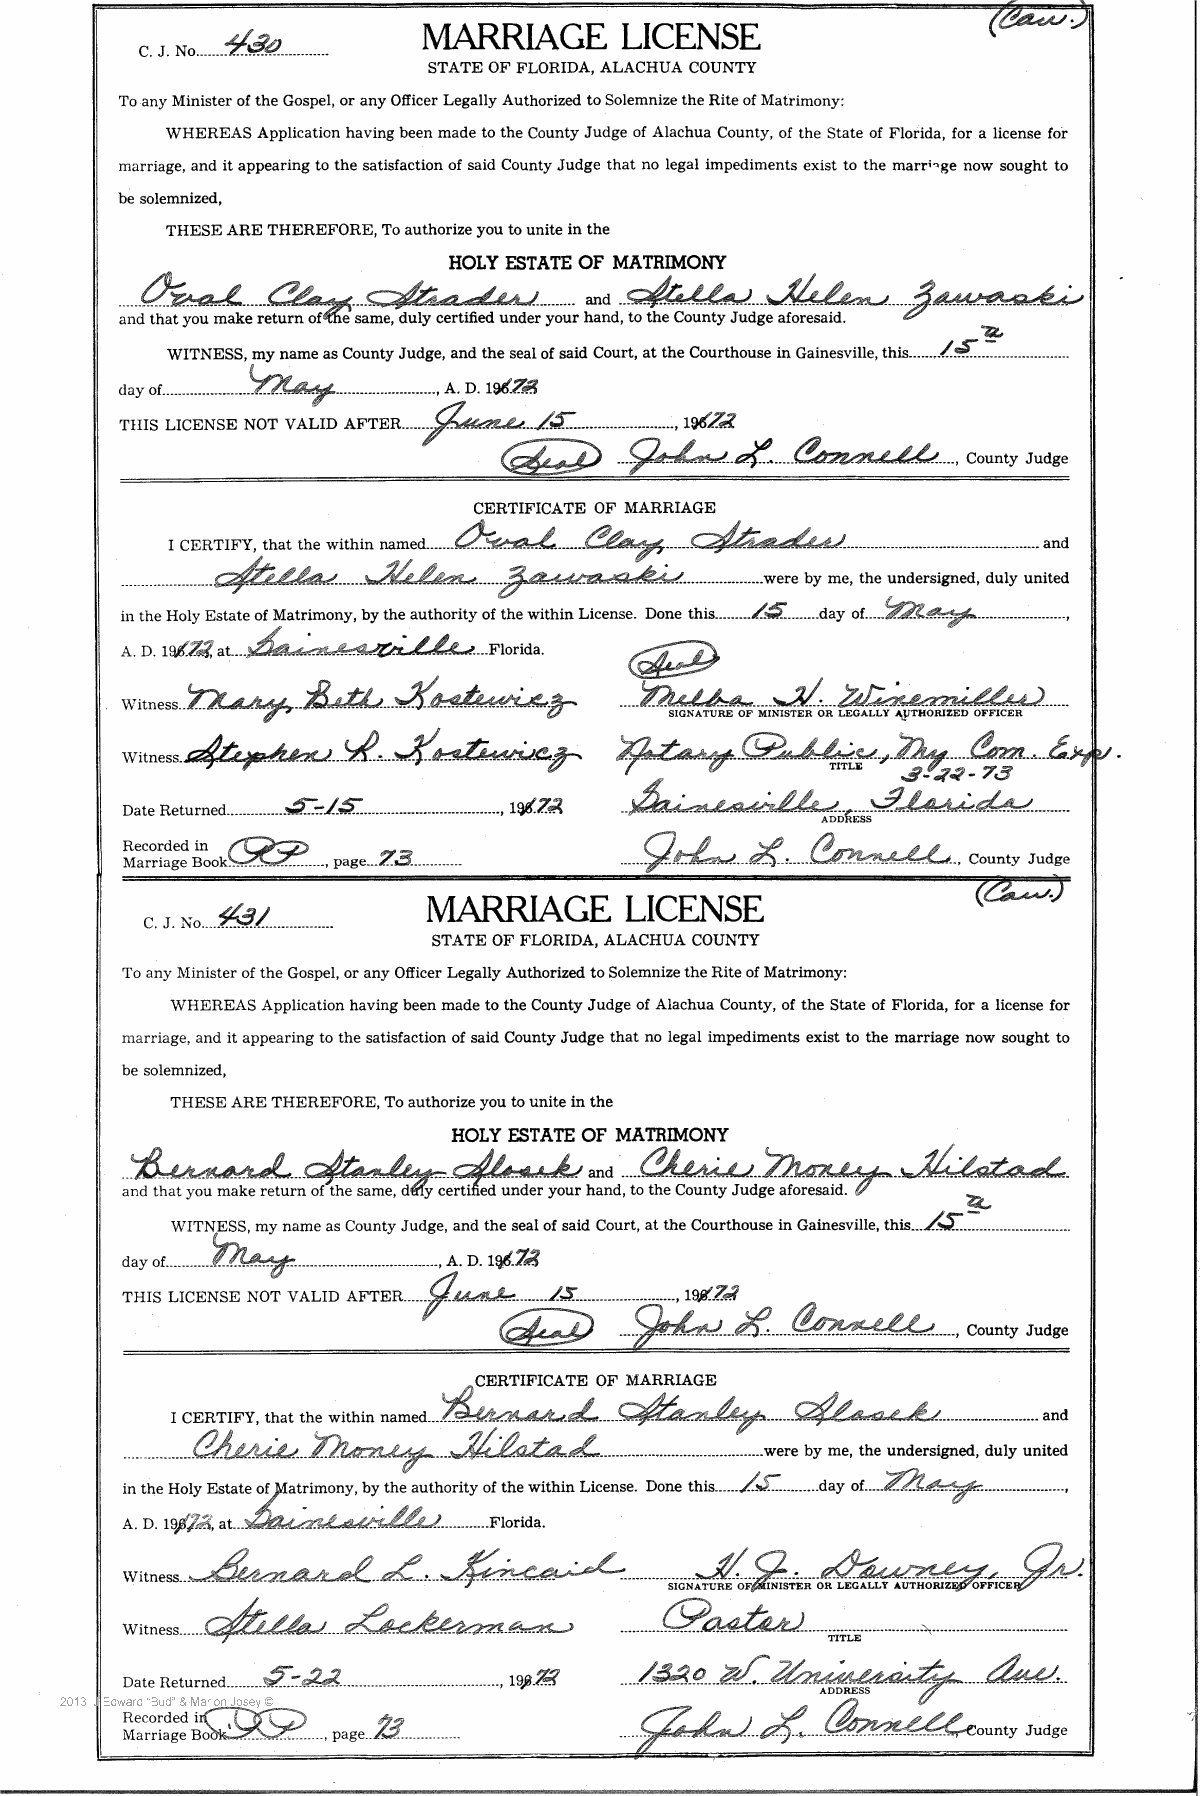 (Cau.)
C. J. No. 430
MARRIAGE LICENSE
STATE OF FLORIDA, ALACHUA COUNTY
To any Minister of the Gospel, or any Officer Legally Authorized to Solemnize the Rite of Matrimony:
WHEREAS Application having been made to the County Judge of Alachua County, of the State of Florida, for a license for
marriage, and it appearing to the satisfaction of said County Judge that no legal impediments exist to the marriage now sought to
be solemnized,
THESE ARE THEREFORE, To authorize you to unite in the
HOLY ESTATE OF MATRIMONY
Oval Clay Strader and Stella Helen Zawaski
and that you make return of the same, duly certified under your hand, to the County Judge aforesaid.
WITNESS, my name as County Judge, and the seal of said Court, at the Courthouse in Gainesville, this 15th
day of May, A. D. 1972
THIS LICENSE NOT VALID AFTER June 15, 1972
(Seal) John L. Connell, County Judge
CERTIFICATE OF MARRIAGE
I CERTIFY, that the within named Oval Clay Strader and
Stella Helen Zawaski were by me, the undersigned, duly united
in the Holy Estate of Matrimony, by the authority of the within License. Done this 15 day of May,
A. D. 1972, at Gainesville Florida.
(Seal)
Witness Mary Beth Kostewicz Melba H. Winemiller
SIGNATURE OF MINISTER OR LEGALLY AUTHORIZED OFFICER
Witness Stephen R. Kostewicz Notary Public, My Com. Exp.
TITLE 3-22-73
Date Returned 5-15, 1972 Gainesville, Florida
ADDRESS
Recorded in
Marriage Book PP, page 73 John L. Connell, County Judge
(Cau.)
C. J. No. 431
MARRIAGE LICENSE
STATE OF FLORIDA, ALACHUA COUNTY
To any Minister of the Gospel, or any Officer Legally Authorized to Solemnize the Rite of Matrimony:
WHEREAS Application having been made to the County Judge of Alachua County, of the State of Florida, for a license for
marriage, and it appearing to the satisfaction of said County Judge that no legal impediments exist to the marriage now sought to
be solemnized,
THESE ARE THEREFORE, To authorize you to unite in the
HOLY ESTATE OF MATRIMONY
Bernard Stanley Slosek and Cherie Money Hilstad
and that you make return of the same, duly certified under your hand, to the County Judge aforesaid.
WITNESS, my name as County Judge, and the seal of said Court, at the Courthouse in Gainesville, this 15th
day of May, A. D. 1972
THIS LICENSE NOT VALID AFTER June 15, 1972
(Seal) John L. Connell, County Judge
CERTIFICATE OF MARRIAGE
I CERTIFY, that the within named Bernard Stanley Slosek and
Cherie Money Hilstad were by me, the undersigned, duly united
in the Holy Estate of Matrimony, by the authority of the within License. Done this 15 day of May,
A. D. 1972, at Gainesville Florida.
Witness Bernard L. Kincaid H. J. Downey, Jr.
SIGNATURE OF MINISTER OR LEGALLY AUTHORIZED OFFICER
Witness Stella Lockerman Pastor
TITLE
Date Returned 5-22, 1972 1320 W. University Ave.
ADDRESS
2013 J Edward "Bud" & Marion Josey ©
Recorded in
Marriage Book PP, page 73 John L. Connell County Judge